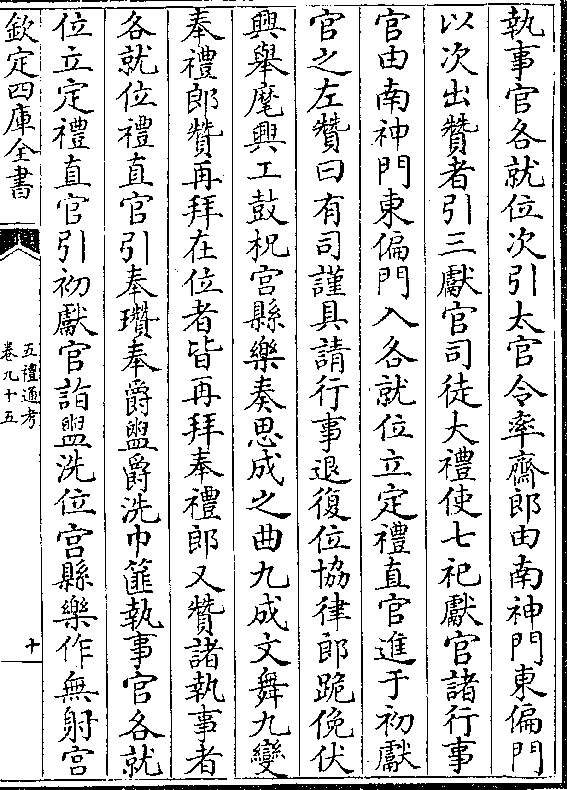 執事官各就位次引太官令率齋郎由南神門東偏門
以次出贊者引三獻官司徒大禮使七祀獻官諸行事
官由南神門東偏門入各就位立定禮直官進于初獻
官之左贊曰有司謹具請行事退復位協律郎跪俛伏
興舉麾興工鼓柷宫縣樂奏思成之曲九成文舞九變
奉禮郎贊再拜在位者皆再拜奉禮郎又贊諸執事者
各就位禮直官引奉瓚奉爵盥爵洗巾篚執事官各就
位立定禮直官引初獻官詣盥洗位宫縣樂作無射宫
欽定四庫全書
五禮通考
卷九十五
十